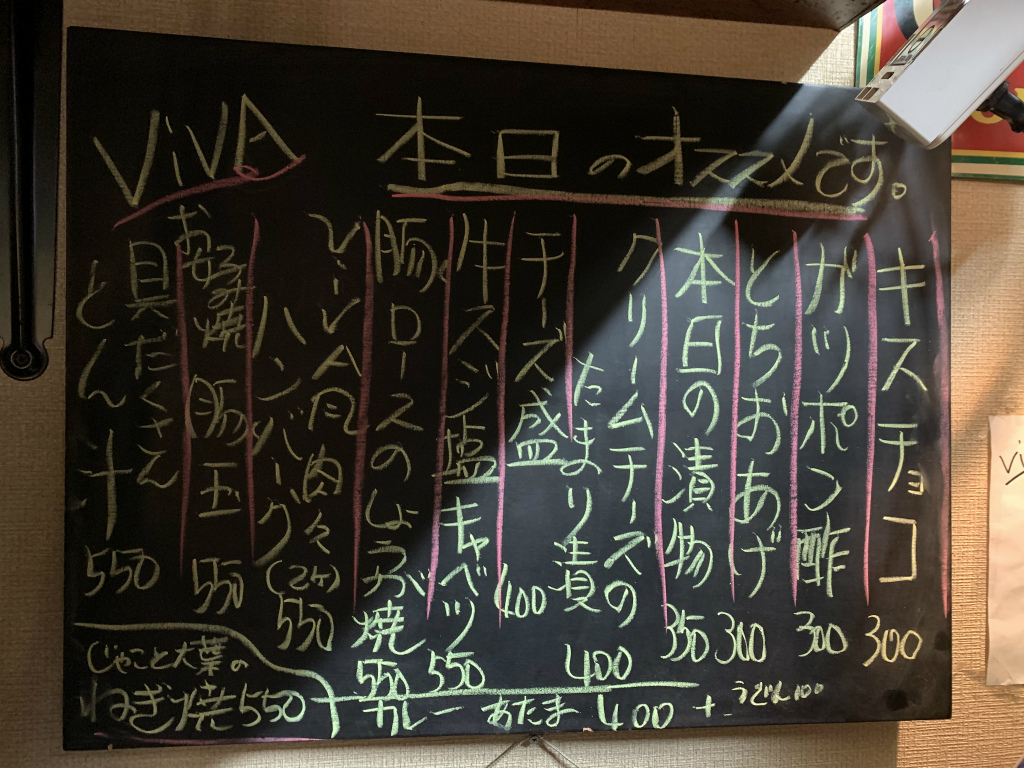 ViVA 本日のオススメです。
キスチョコ 300
ガツポン酢 300
とちおあげ 300
本日の漬物 350
クリームチーズの
たまり漬 400
チーズ盛 400
牛スジ塩キャベツ 550
豚ロースのしょうが焼 550
ハンバーグ(2ヶ) 550
お好み焼 豚玉 550
具だくさん
とん汁 550
じゃこと大葉の
ねぎ焼 550
カレーあたま 400 + うどん100